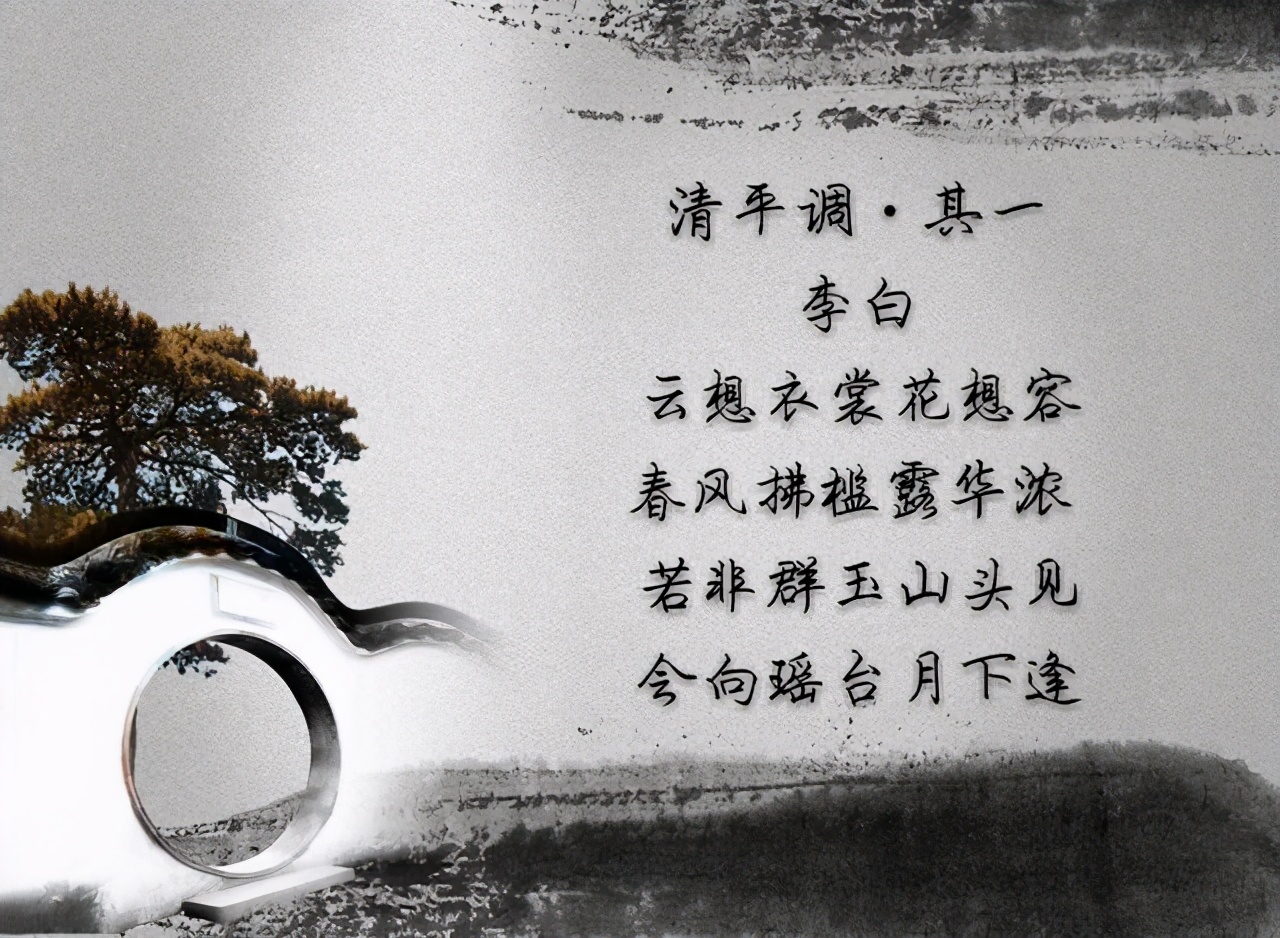 清平调·其一
李白
云想衣裳花想容
春风拂槛露华浓
若非群玉山头见
会向瑶台月下逢